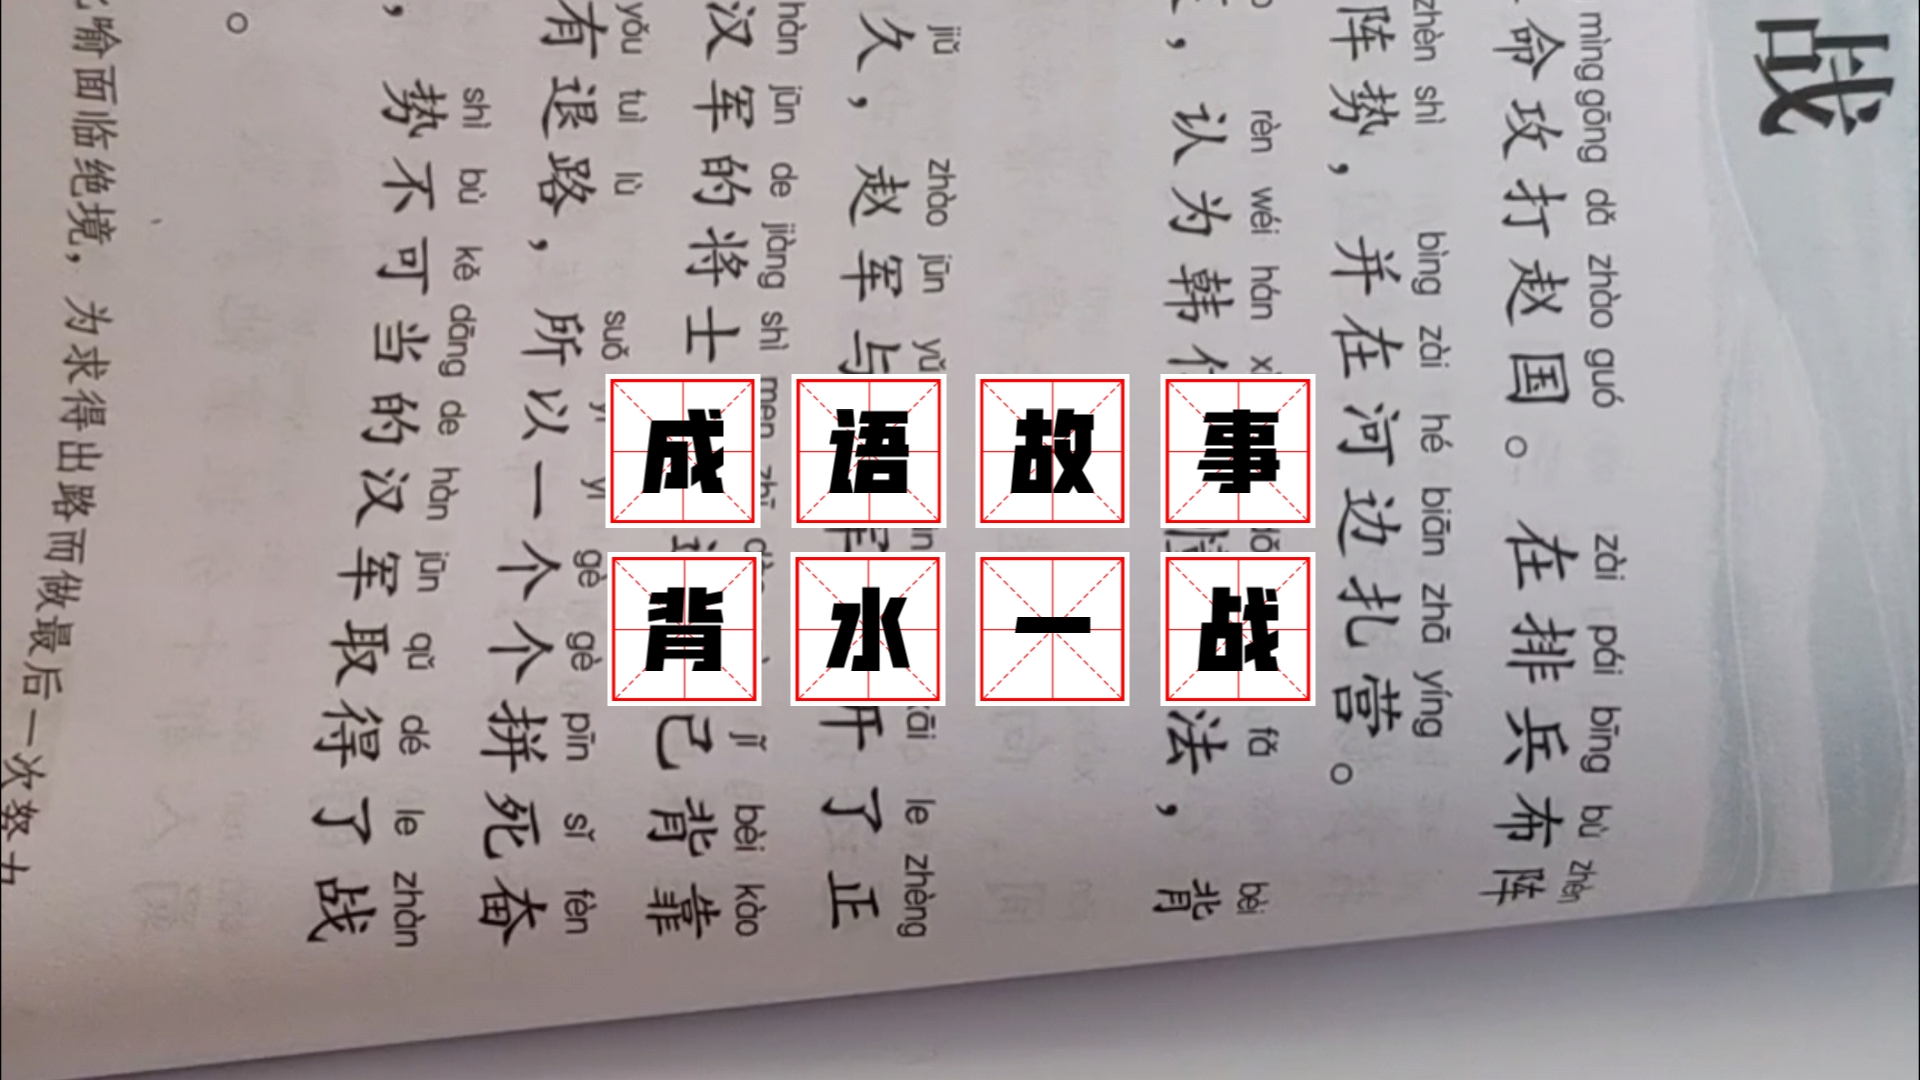 成语故事
背水一战
战
mìng gōng dǎ zhào guó zài pái bīng bù zhèn
命攻打赵国。在排兵布阵
zhèn shì bìng zài hé biān zhā yíng
阵势，并在河边扎营。
rèn wéi hán fǎ bèi
，认为韩 法，背
jiǔ zhào jūn yǔ le zhèng
久，赵军与 开了正
hàn jūn de jiàng shì men zhī jǐ bèi kào
汉军的将士 己背靠
yǒu tuì lù suǒ yī gè gè pīn sǐ fèn
有退路，所以一个个拼死奋
shì bù kě dāng de hàn jūn qǔ dé le zhàn
，势不可当的汉军取得了战
。
喻面临绝境，为求得出路而做最后一次努力